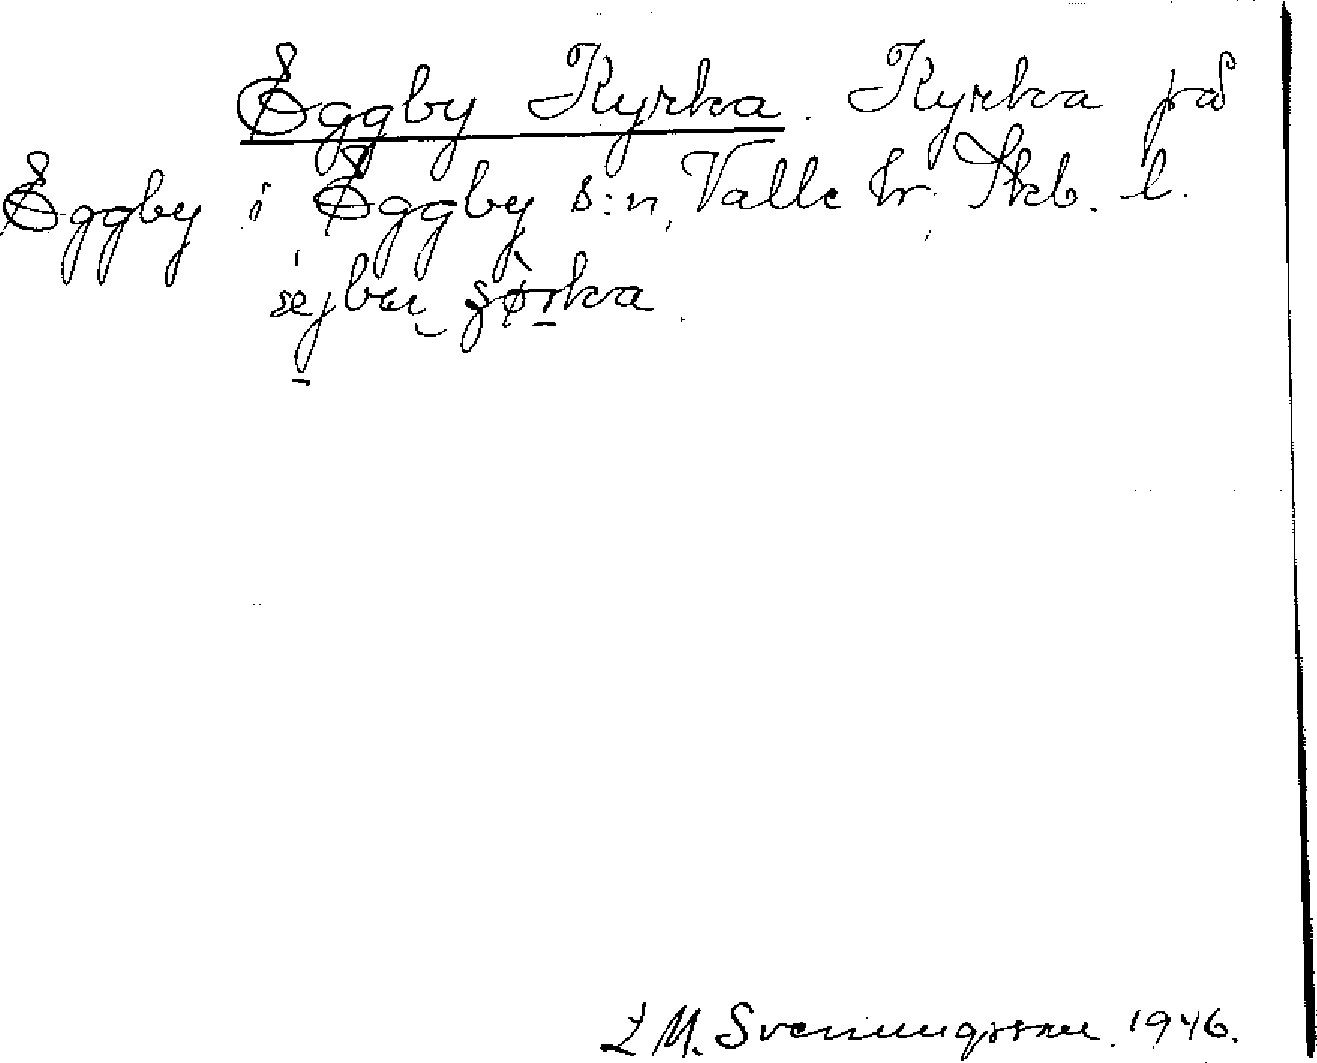 Eggby Kyrka. Kyrka på
Eggby i Eggby s:n, Valle hr. Skb. l.
L M. Svenungsson. 1946.